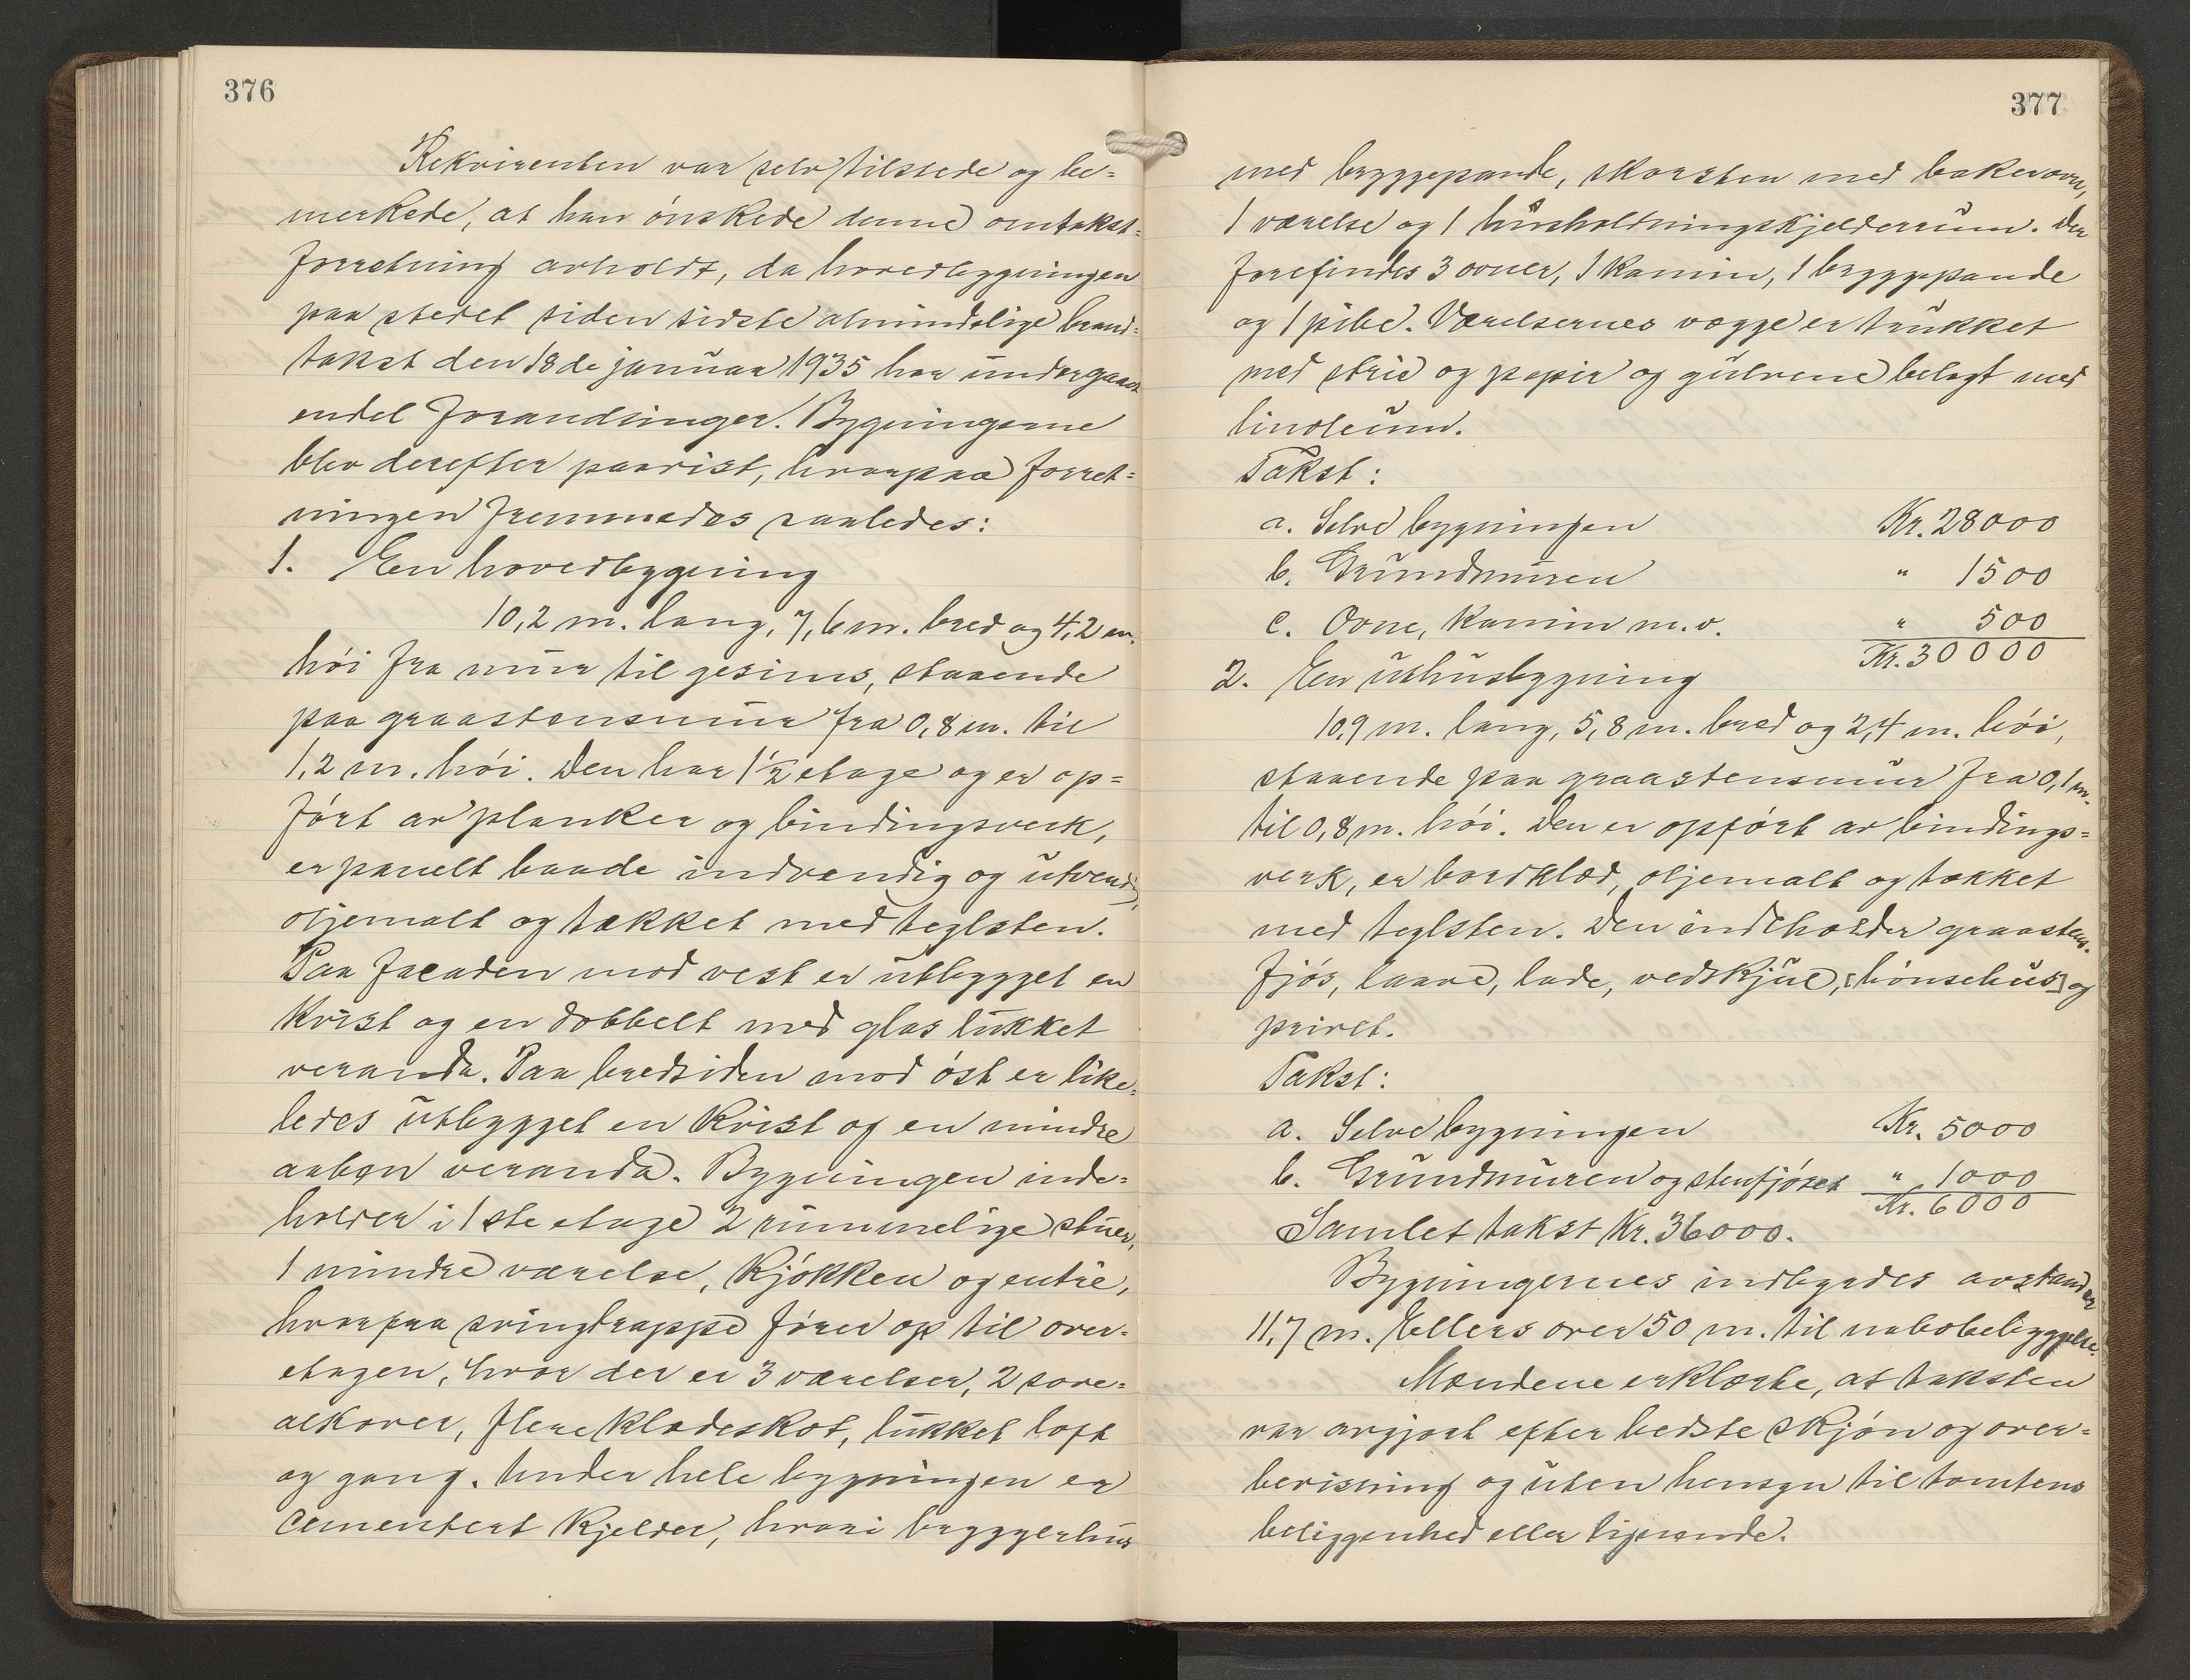 376
Rekvirenten var selv tilstede og be=
merkede, at han ønskede denne omtakst=
forretning avholdt, da hovedbygningen
paa stedet siden sidste almindelige brand=
takst den 18de januar 1935 har undergaat
endel forandringer. Bygningerne
blev derefter paavist, hvorpaa forret=
ningen fremmedes saaledes:
1. En hovedbygning
10,2 m. lang, 7,6 m. bred og 4,2 m.
høi fra mur til gesims, staaende
paa graastensmur fra 0,8 m. til
1,2 m. høi. Den har 1½ etage og er op=
ført av planker og bindingsverk,
er panelt baade indvendig og utvendig,
oljemalt og tækket med teglsten.
Paa facaden mod vest er utbygget en
kvist og en dobbelt med glas lukket
veranda. Paa bredsiden mod øst er like=
ledes utbygget en kvist og en mindre
aaben veranda. Bygningen inde=
holder i 1ste etage 2 rummelige stuer,
1 mindre værelse, kjøkken og entré,
hvorfra svingtrappe fører op til over=
etagen, hvor der er 3 værelser, 2 sove=
alkover, flere klædeskot, lukket loft
og gang. Under hele bygningen er
cementert kjelder, hvori bryggerhus
377
med bryggepande, skorsten med bakerovn,
1 værelse og 1 husholdningskjelderrum. Der
forefindes 3 ovner, 1 kamin, 1 bryggepande
og 1 pibe. Værelsernes vægge er trukket
med strie og papir og gulvene belagt med
linoleum.
Takst:
a. Selve bygningen Kr. 28000
b. Grundmuren " 1500
c. Ovne, kamin m.v. " 500
Kr. 30000
2. En uthusbygning
10,9 m. lang, 5,8 m. bred og 2,4 m. høi,
staaende paa graastensmur fra 0,1 m.
til 0,8 m. høi. Den er opført av bindings=
verk, er bordklæd, oljemalt og tækket
med teglsten. Den indeholder graastens=
fjøs, laave, lade, vedskjul, [hønsehus] og
privet.
Takst:
a. Selve bygningen Kr. 5000
b. Grundmuren og stenfjøset " 1000
Kr. 6000
Samlet takst Kr. 36000.
Bygningernes indbyrdes avstand er
11,7 m. Ellers over 50 m. til nabobebyggelse.
Mændene erklærte, at taksten
var avgjort efter bedste skjøn og over=
bevisning og uten hensyn til tomtens
beliggenhed eller lignende.